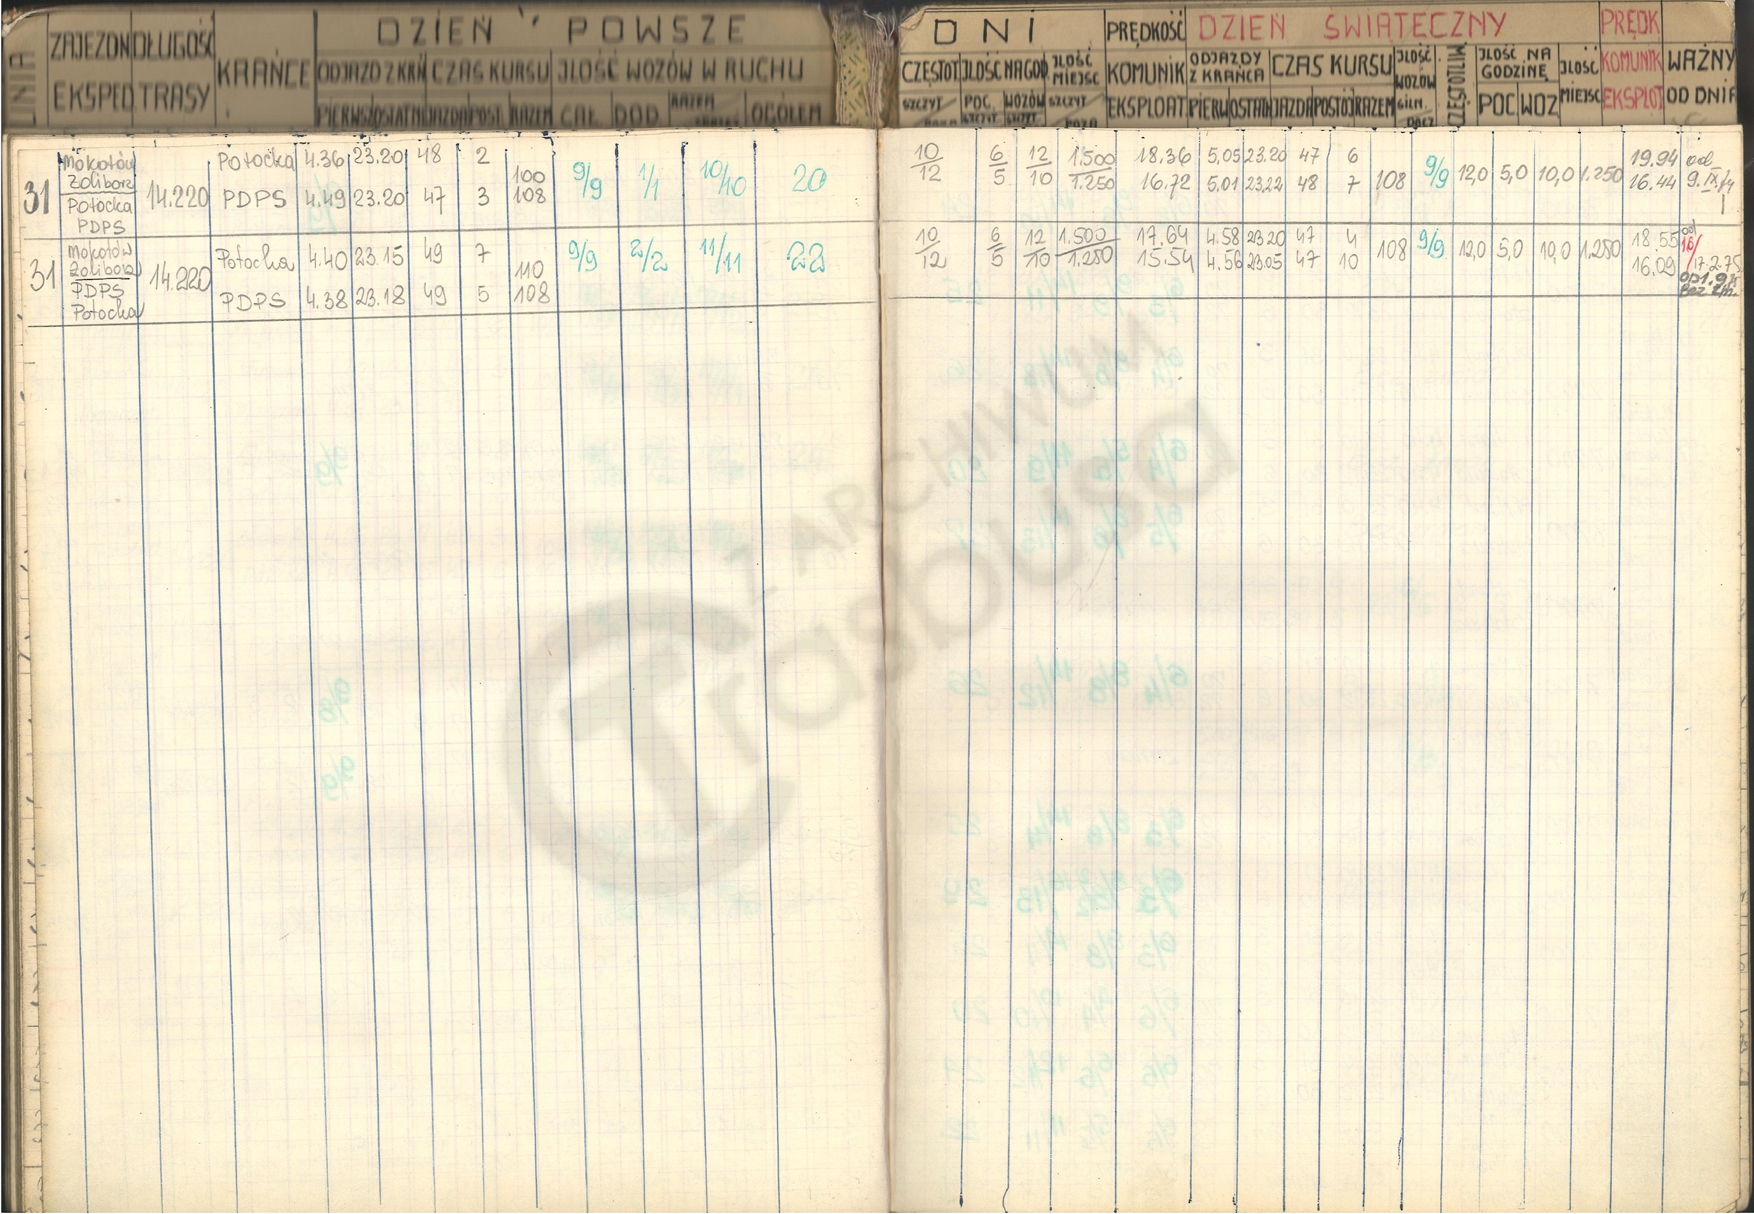 DZIEŃ POWSZE DNI PRĘDKOŚĆ DZIEŃ ŚWIĄTECZNY PRĘDK
LINIA ZAJEZDN DŁUGOŚĆ KRAŃCE ODJAZD Z KRAŃ CZAS KURSU JLOŚĆ WOZÓW W RUCHU CZĘSTOT JLOŚĆ NA GOD JLOŚĆ MIEJSC KOMUNIK ODJAZDY Z KRAŃCA CZAS KURSU JLOŚĆ WOZÓW CZĘSTOTLIW JLOŚĆ NA GODZINĘ JLOŚĆ MIEJSC KOMUNIK WAŻNY
EKSPED TRASY PIERWSZ OSTATNI JAZDA POST RAZEM CAŁ. DOD. RAZEM OGÓŁEM SZCZYT POC. WOZÓW SZCZYT EKSPLOAT PIERW OSTATN JAZDA POSTÓJ RAZEM POC WOZ EKSPLOT OD DNIA
31 Mokotów 14.220 Potocka 4.36 23.20 48 2 100 9/9 1/1 10/10 20 10 6 12 1.500 18.36 5,05 23.20 47 6 108 9/9 12,0 5,0 10,0 1.250 19.94 od
Żoliborz PDPS 4.49 23.20 47 3 108 12 5 10 1.250 16.72 5,01 23.22 48 7 16.44
Potocka
PDPS
31 Mokotów 14.220 Potocka 4.40 23.15 49 7 110 9/9 2/2 11/11 22 10 6 12 1.500 17.64 4.58 23.20 47 4 108 9/9 12,0 5,0 10,0 1.250 18.55 od
Żoliborz PDPS 4.38 23.18 49 5 108 12 5 10 1.250 15.54 4.56 23.05 47 10 16.09 17.2.75
PDPS
Potocka
Z ARCHIWUM
Trasbusa